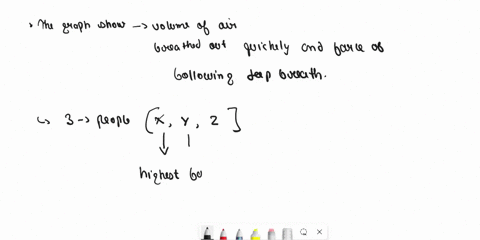 The graph show → volume of air
breathed out quickely and force of
following deep breath.
↳ 3 → people [x, y, z]
highest bo